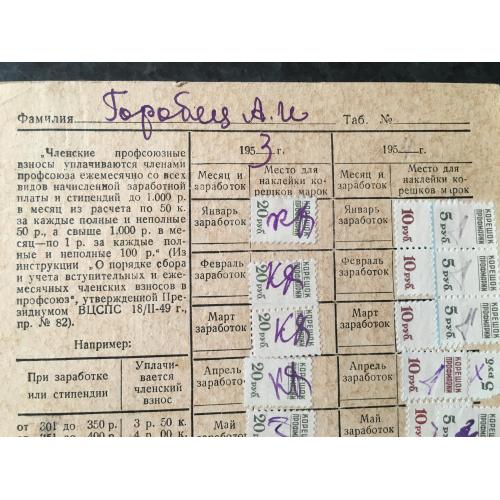 Фамилия Горобец А. И Таб. №
„Членские профсоюзные
взносы уплачиваются членами
профсоюза ежемесячно со всех
видов начисленной заработной
платы и стипендий до 1.000 р.
в месяц из расчета по 50 к.
за каждые полные и неполные
50 р., а свыше 1.000 р. в ме-
сяц—по 1 р. за каждые пол-
ные и неполные 100 р.“ (Из
инструкции „О порядке сбора
и учета вступительных и еже-
месячных членских взносов в
профсоюз“, утвержденной Пре-
зидиумом ВЦСПС 18/II-49 г.,
пр. № 82).
Например:
При заработке
или стипендии
Уплачи-
вается
членский
взнос
от 301 до 350 р.
3 р. 50 к.
400 р.
4 р. 00 к.
1953 г.
Месяц и
заработок
Место для
наклейки ко-
решков марок
Январь
заработок
20 руб
Февраль
заработок
20 руб
Март
заработок
20 руб
Апрель
заработок
20 руб
Май
заработок
20 руб
195 г.
Месяц и
заработок
Место для
наклейки ко-
решков марок
Январь
заработок
10 руб
5 руб
КОРЕШОК
ПРОФМАРКИ
Февраль
заработок
10 руб
5 руб
КОРЕШОК
ПРОФМАРКИ
Март
заработок
10 руб
5 руб
КОРЕШОК
ПРОФМАРКИ
Апрель
заработок
10 руб
КОРЕШОК
ПРОФМАРКИ
5 руб
Май
заработок
10 руб
5 руб
КОРЕШОК